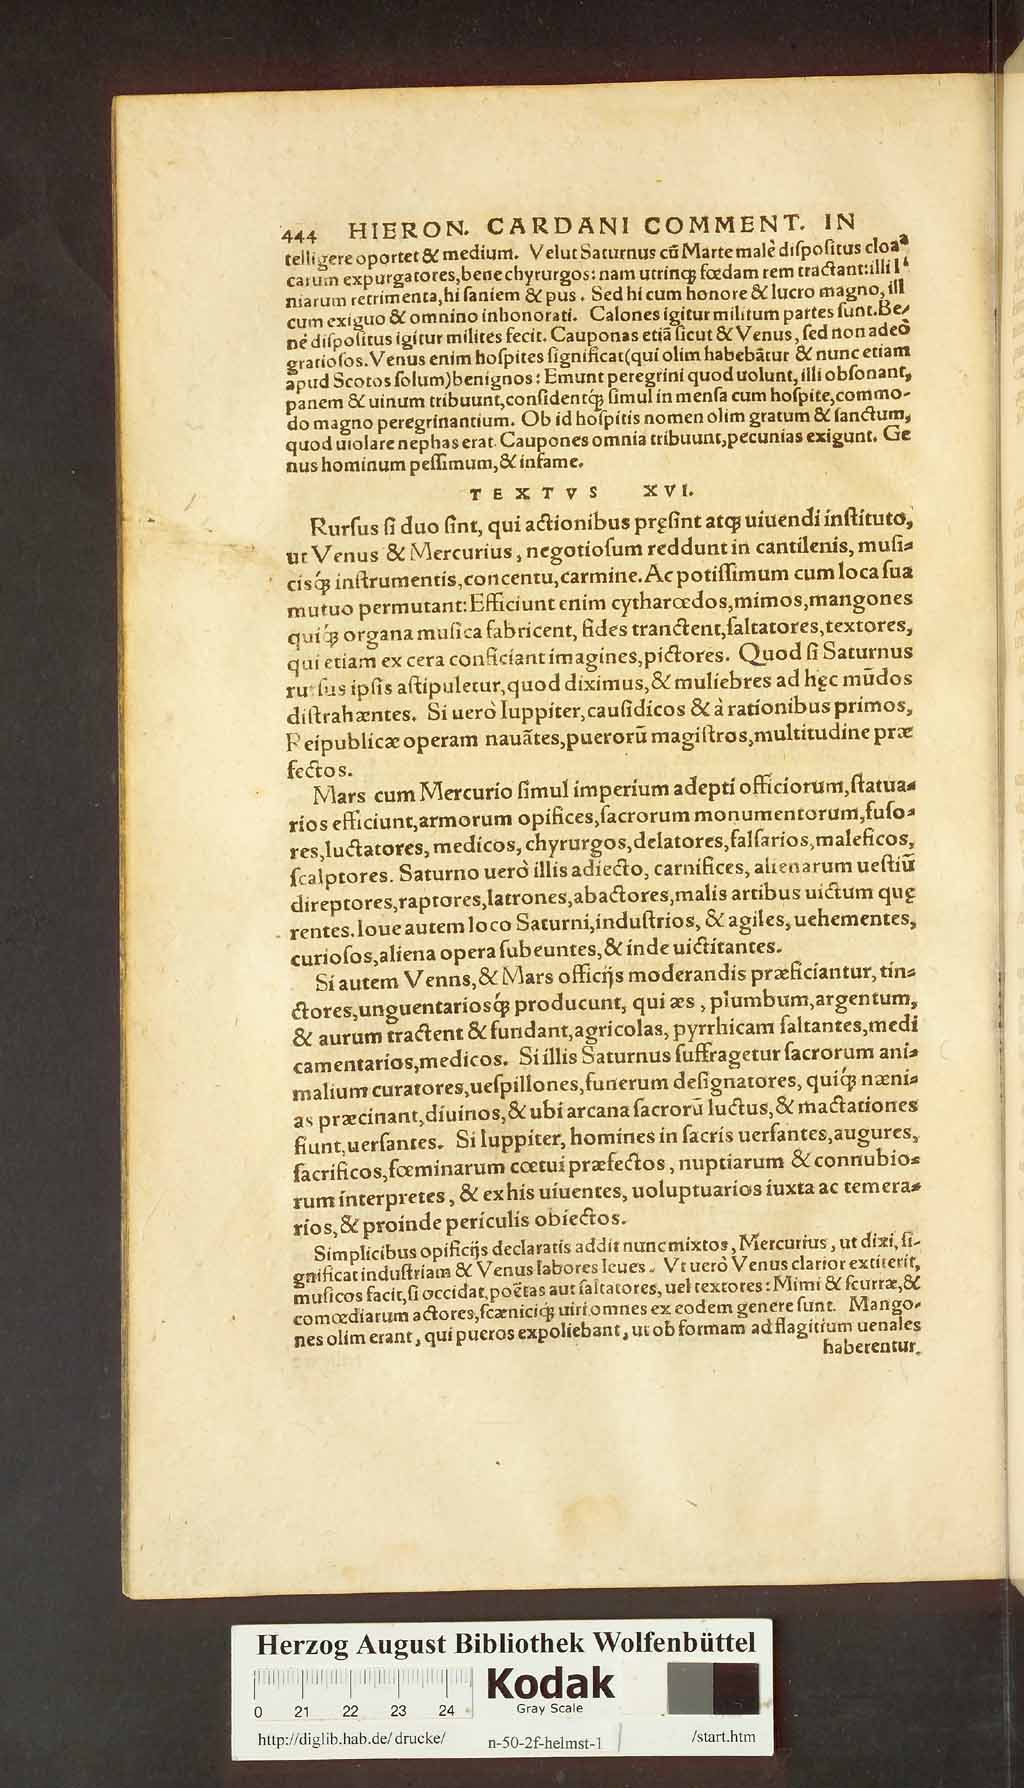 444 HIERON. CARDANI COMMENT. IN
telligere oportet & medium. Velut Saturnus cũ Marte malè dispositus cloa⸗
carum expurgatores, bene chyrurgos: nam utrinq; fœdam rem tractant: illi
niarum retrimenta, hi saniem & pus. Sed hi cum honore & lucro magno, ill
cum exiguo & omnino inhonorati. Calones igitur militum partes sunt. Be⸗
né dispositus igitur milites fecit. Cauponas etiã sicut & Venus, sed non adeò
gratiosos. Venus enim hospites significat (qui olim habebãtur & nunc etiam
apud Scotos solum) benignos: Emunt peregrini quod uolunt, illi obsonant,
panem & uinum tribuunt, considentq́; simul in mensa cum hospite, commo⸗
do magno peregrinantium. Ob id hospitis nomen olim gratum & sanctum,
quod uiolare nephas erat. Caupones omnia tribuunt, pecunias exigunt. Ge
nus hominum pessimum, & infame.
TEXTVS XVI.
Rursus si duo sint, qui actionibus pręsint atq; uiuendi instituto,
ut Venus & Mercurius, negotiosum reddunt in cantilenis, musi⸗
cisq́; instrumentis, concentu, carmine. Ac potissimum cum loca sua
mutuo permutant: Efficiunt enim cytharœdos, mimos, mangones
quiq́; organa musica fabricent, fides tranctent, saltatores, textores,
qui etiam ex cera conficiant imagines, pictores. Quod si Saturnus
rursus ipsis astipuletur, quod diximus, & muliebres ad hęc mũdos
distrahæntes. Si uerò Iuppiter, causidicos & à rationibus primos,
Reipublicæ operam nauãtes, puerorũ magistros, multitudine præ
fectos.
Mars cum Mercurio simul imperium adepti officiorum, statua⸗
rios efficiunt, armorum opifices, sacrorum monumentorum, fuso⸗
res, luctatores, medicos, chyrurgos, delatores, falsarios, maleficos,
scalptores. Saturno uerò illis adiecto, carnifices, alienarum uestiũ
direptores, raptores, latrones, abactores, malis artibus uictum quę
rentes. Ioue autem loco Saturni, industrios, & agiles, uehementes,
curiosos, aliena opera subeuntes, & inde uictitantes.
Si autem Venns, & Mars officijs moderandis præficiantur, tin⸗
ctores, unguentariosq́; producunt, qui æs, plumbum, argentum,
& aurum tractent & fundant, agricolas, pyrrhicam saltantes, medi
camentarios, medicos. Si illis Saturnus suffragetur sacrorum ani⸗
malium curatores, uespillones, funerum designatores, quiq́; næni⸗
as præcinant, diuinos, & ubi arcana sacrorũ luctus, & mactationes
fiunt, uersantes. Si Iuppiter, homines in sacris uersantes, augures,
sacrificos, fœminarum cœtui præfectos, nuptiarum & connubio⸗
rum interpretes, & ex his uiuentes, uoluptuarios iuxta ac temera⸗
rios, & proinde periculis obiectos.
Simplicibus opificijs declaratis addit nunc mixtos, Mercurius, ut dixi, si⸗
gnificat industriam & Venus labores leues. Vt uerò Venus clarior extiterit,
musicos facit, si occidat, poëtas aut saltatores, uel textores: Mimi & scurræ, &
comœdiarum actores, scæniciq; uiri omnes ex eodem genere sunt. Mango⸗
nes olim erant, qui pueros expoliebant, ut ob formam ad flagitium uenales
haberentur.
Herzog August Bibliothek Wolfenbüttel
Kodak
Gray Scale
0 21 22 23 24
http://diglib.hab.de/drucke/ n-50-2f-helmst-1 /start.htm